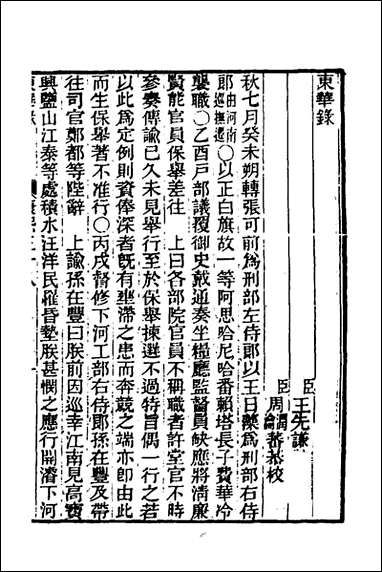 東華錄
臣王先謙
臣周潤蕃恭校
秋七月癸未朔轉張可前為刑部左侍郎以王日藻為刑部右侍
郎由河南巡撫遷○以正白旗故一等阿思哈尼哈番賴塔長子費華冷
襲職○乙酉戶部議覆御史戴通奏坐糧廳監督員缺應將清廉
賢能官員保舉差往　上曰各部院官員不稱職者許堂官不時
參奏傳諭已久未見舉行至於保舉揀選不過特旨偶一行之若
以此為定例則資俸深者既有壅滯之患而奔競之端亦卽由此
而生保舉著不准行○丙戌督修下河工部右侍郎孫在豐及帶
往司官鄭都等陛辭　上諭孫在豐曰朕前因巡幸江南見高寶
興鹽山江泰等處積水汪洋民罹昏墊朕甚憫之應行開濬下河